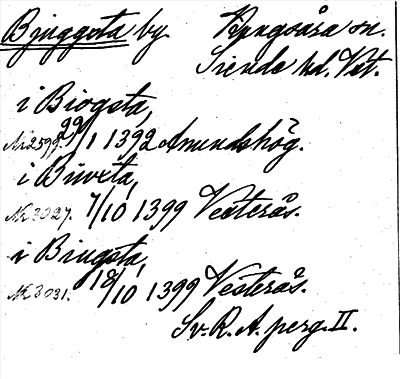 Bjuggsta by Kungsåra sn.
Siende hd. Vst.
i Biogsta,
Nr 2599. 29/1 1392 Amundshög.
i Buvxta,
Nr 3027. 7/10 1399 Vesterås.
i Biugsta,
Nr 3031. 18/10 1399 Vesterås.
Sv. R. A. perg. II.